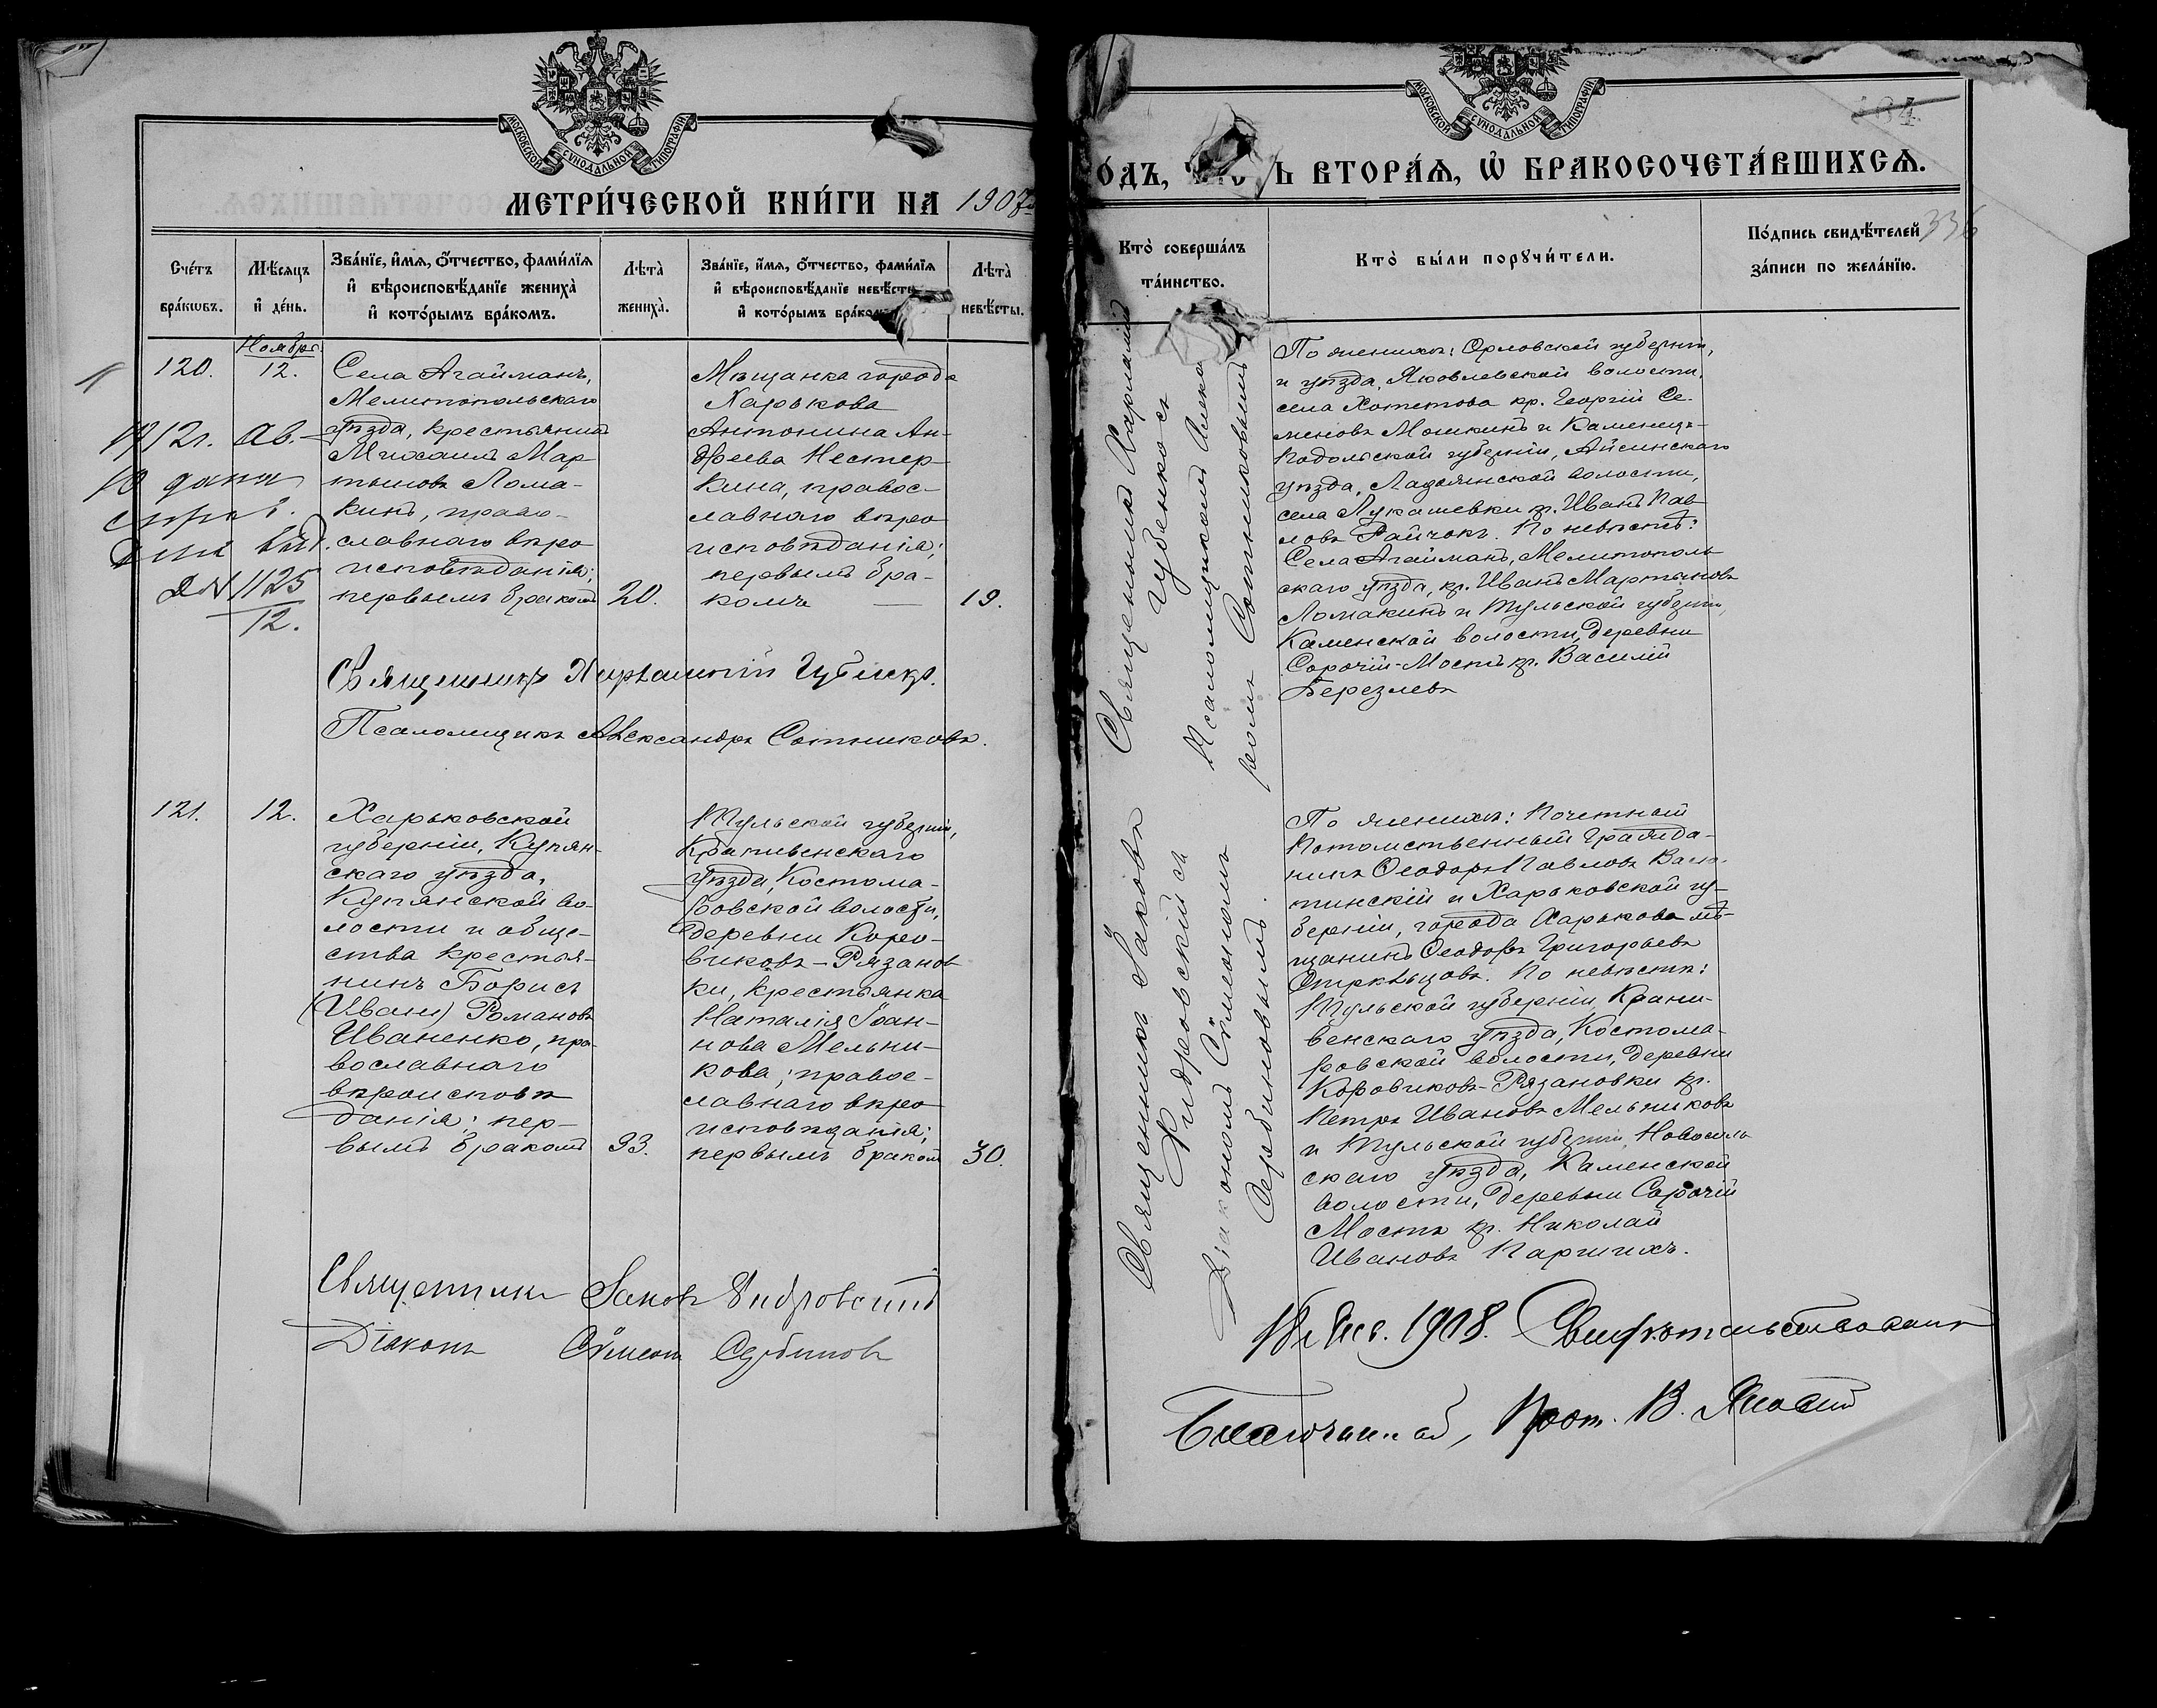 МОСКОВСКОЙ СѴНОДАЛЬНОЙ ТИПОГРАФІИ
МЕТРИ́ЧЕСКОЙ КНИ́ГИ НА 1907
Сче́тъ бра́кѡвъ.
Мѣ́сяцъ и҆ де́нь.
Зва́нїе, и҆́мѧ, ѻ҆́тчество, фами́лїѧ
и҆ вѣроисповѣ́данїе жениха̀
и҆ кото́рымъ бра́комъ.
Лѣта̀ жениха̀.
Зва́нїе, и҆́мѧ, ѻ҆́тчество, фами́лїѧ
и҆ вѣроисповѣ́данїе невѣ́сты
и҆ кото́рымъ бра́комъ
Лѣта̀ невѣ́сты.
120.
Ноябрь
12.
1912г. Ав.
10 дана
вид.
№ 1125
12.
Села Агайманъ,
Мелитопольскаго
уѣзда, крестьянинъ
Михаилъ Мар
тыновъ Лома-
кинъ, право-
славнаго вѣро
исповѣданія;
первымъ бракомъ
20.
Мѣщанка города
Харькова
Антонина Ан-
дреева Нестер-
кина, правос-
лавнаго вѣро
исповѣданія;
первымъ бра-
комъ —
19.
Священникъ Харлампій Губенко.
Псаломщикъ Александръ Сотниковъ.
121.
12.
Харьковской
губерніи, Купян-
скаго уѣзда,
Купянской во-
лости и обще-
ства крестья-
нинъ Борисъ
(Иванъ) Романовъ
Иваненко, пра-
вославнаго
вѣроисповѣ
данія; пер-
вымъ бракомъ
33.
Тульской губерніи,
Крапивенскаго
уѣзда, Костома-
ровской волости,
деревни Коро-
виковъ-Рязанов
ки, крестьянка
Наталія Іоан-
нова Мельни-
кова; правос-
лавнаго вѣро
исповѣданія;
первымъ бракомъ
30.
Священникъ Іаковъ
Діаконъ Сѵмеонъ Сербиновъ
МОСКОВСКОЙ СѴНОДАЛЬНОЙ ТИПОГРАФІИ
184
ОДЪ, Ь ВТОРА́Ѧ, Ѡ҆ БРАКОСОЧЕТА́ВШИХСѦ.
336
Кто̀ соверша́лъ
та́инство.
Кто̀ бы́ли порꙋчи́тели.
По́дпись свидѣ́телей
за́писи по жела́нїю.
Священникъ Харлампій
Губенко съ
Псаломщикомъ Алекса
ромъ Сотниковымъ
По женихѣ: Орловской губерніи,
и уѣзда, Яковлевской волости,
села Хотетова кр. Георгій Се-
меновъ Мошкинъ и Каменецъ-
Подольской губерніи, Айсинскаго
уѣзда, Ладыжинской волости,
села Лукашевки кр. Иванъ Пав
ловъ Райчокъ. По невѣстѣ:
Села Агайманъ, Мелитополь
скаго уѣзда, кр. Иванъ Мартыновъ
Ломакинъ и Тульской губерніи,
Каменской волости, деревни
Сорочій-Мостъ кр. Василій
Березлевъ
Священникъ Іаковъ
съ
Діакономъ Сѵмеономъ
Сербиновымъ.
По женихѣ: Почетный
Потомственный Гражда-
нинъ Ѳеодоръ Павловъ
и Харьковской гу-
берніи, города Харькова мѣ-
щанинъ Ѳеодоръ Григорьевъ
Стрѣльцовъ. По невѣстѣ:
Тульской губерніи, Крапи-
венскаго уѣзда, Костома-
ровской волости, деревни
Коровиковъ-Рязановки кр.
Петръ Ивановъ Мельниковъ
и Тульской губерніи, Новосиль
скаго уѣзда, Каменской
волости, деревни Сорочій
Мостъ кр. Николай
Ивановъ Паршихъ.
18 1908. Свидѣтельствовалъ
Благочинный, Прот. В.